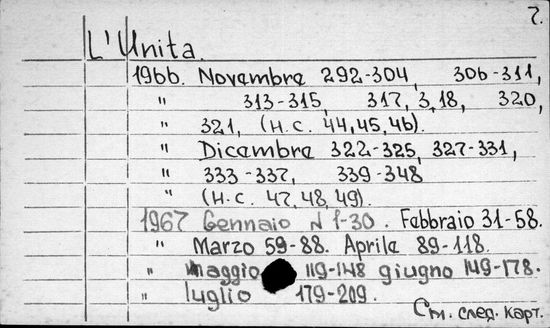 7.
L'Unita.
1966. Novembre 292-304, 306-311,
" 313-315, 317, 3,18, 320,
" 321, (н.с. 44,45,46).
" Dicambra 322-325, 327-331,
" 333-337, 339-348
" (н.с. 47,48,49).
1967 Gennaio N 1-30. Fabbraio 31-58.
" Marzo 59-88. Aprile 89-118.
" maggio 119-148 giugno 149-178.
" luglio 179-209.
См. след. карт.